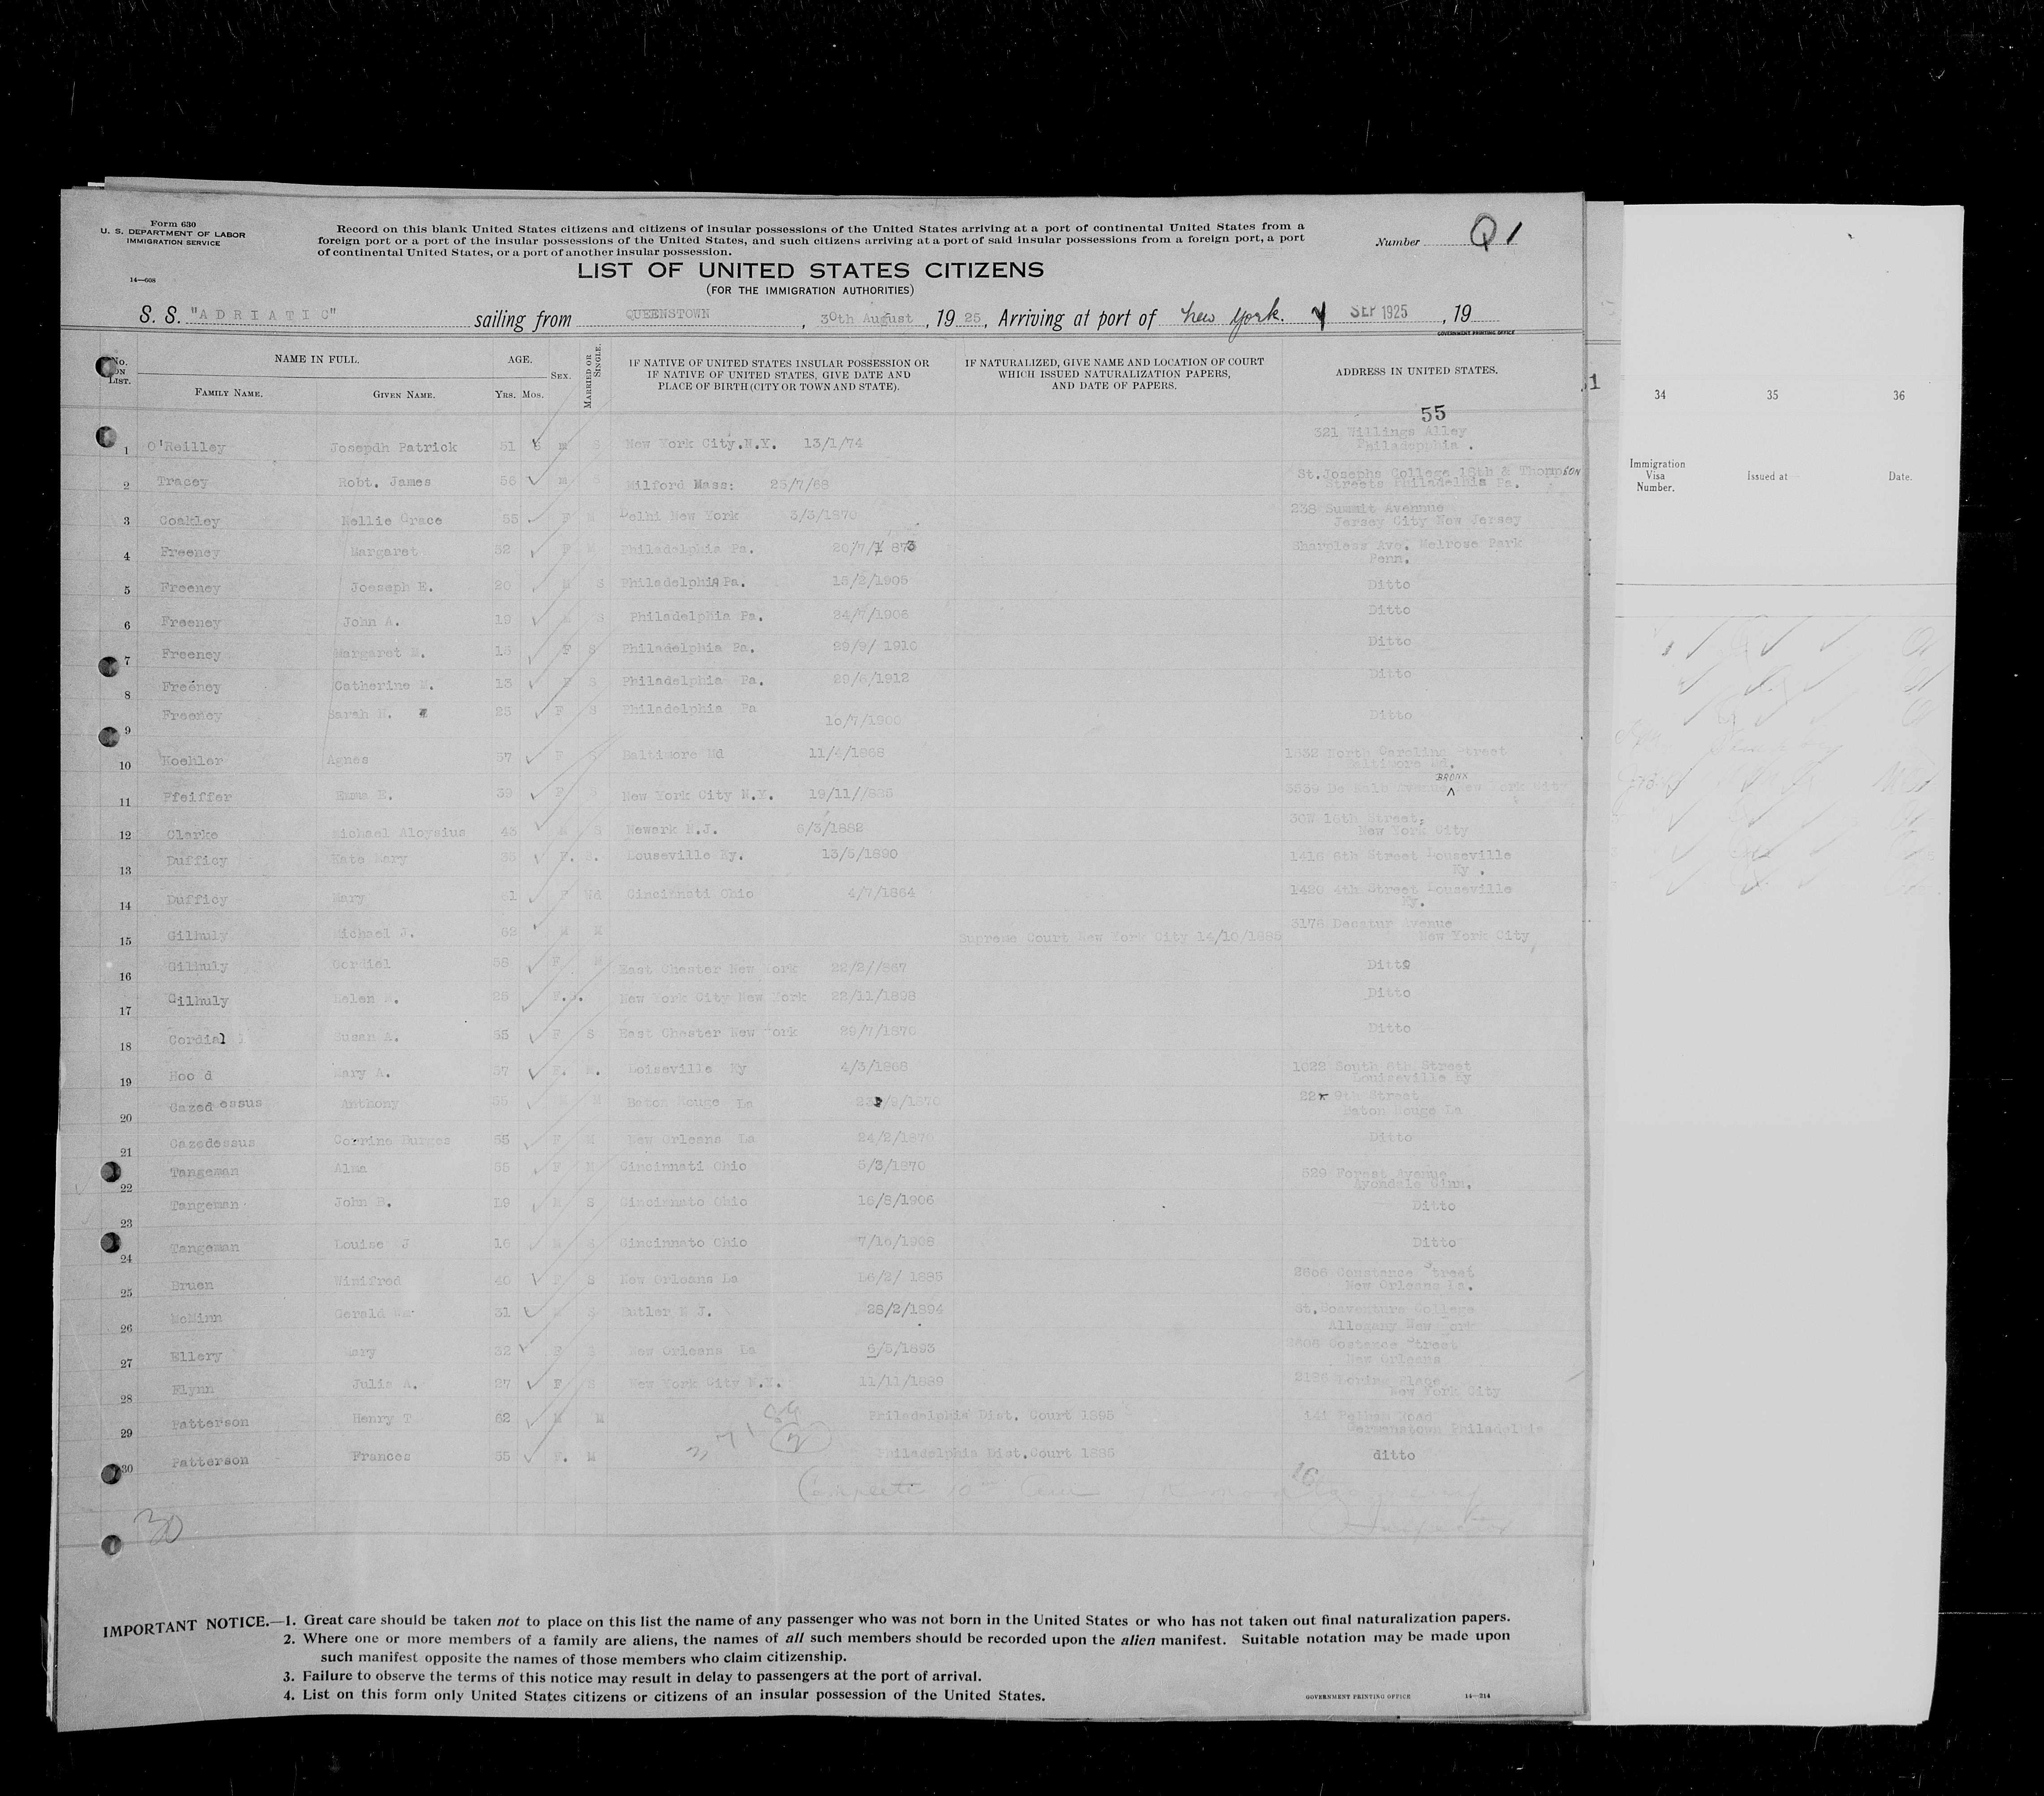 Form 630
U. S. DEPARTMENT OF LABOR
IMMIGRATION SERVICE
14—608
Record on this blank United States citizens and citizens of insular possessions of the United States arriving at a port of continental United States from a
foreign port or a port of the insular possessions of the United States, and such citizens arriving at a port of said insular possessions from a foreign port, a port
of continental United States, or a port of another insular possession.
Number Q 1
LIST OF UNITED STATES CITIZENS
(FOR THE IMMIGRATION AUTHORITIES)
S. S. "ADRIATIC" sailing from QUEENSTOWN, 30th August, 19 25, Arriving at port of New York. SEP 1925, 19
GOVERNMENT PRINTING OFFICE
No. ON LIST. NAME IN FULL. FAMILY NAME. GIVEN NAME. AGE. Yrs. Mos. SEX. MARRIED OR SINGLE.
IF NATIVE OF UNITED STATES INSULAR POSSESSION OR
IF NATIVE OF UNITED STATES, GIVE DATE AND
PLACE OF BIRTH (CITY OR TOWN AND STATE).
IF NATURALIZED, GIVE NAME AND LOCATION OF COURT
WHICH ISSUED NATURALIZATION PAPERS,
AND DATE OF PAPERS.
ADDRESS IN UNITED STATES.
55
1 O'Reilley Josepdh Patrick 51 m S New York City.N.Y. 13/1/74 321 Willings Alley
Philadepphia .
2 Tracey Robt. James 56 m S Milford Mass: 25/7/68 St.Josephs College 16th & Thompson
Streets Philadelhia Pa.
3 Coakley Nellie Grace 55 F M Delhi New York 3/3/1870 238 Summit Avennue
Jersey City New Jersey
4 Freeney Margaret 52 F M Philadelphia Pa. 20/7/1873 Sharpless Ave. Melrose Park
Penn.
5 Freeney Joeseph E. 20 M S Philadelphia Pa. 15/2/1905 Ditto
6 Freeney John A. 19 M S Philadelphia Pa. 24/7/1906 Ditto
7 Freeney Margaret M. 15 F S Philadelphia Pa. 29/9/ 1910 Ditto
8 Freeney Catherine M. 13 F S Philadelphia Pa. 29/6/1912 Ditto
9 Freeney Sarah N. 25 F S Philadelphia Pa 10/7/1900 Ditto
10 Koehler Agnes 57 F S Baltimore Md 11/4/1868 1632 North Caroline Street
Baltimore Md.
11 Pfeiffer Emma E. 39 F S New York City N.Y. 19/11//886 3539 De Kalb Avenue BRONX New York City
12 Clarke Michael Aloysius 43 M S Newark N.J. 6/3/1882 30W 16th Street,
New York City
13 Dufficy Kate Mary 35 F. S. Louseville Ky. 13/6/1890 1416 6th Street Louseville
Ky .
14 Dufficy Mary 61 F Wd Cincinnati Ohio 4/7/1864 1420 4th Street Louseville
Ky.
15 Gilhuly Michael J. 62 M M Supreme Court New York City 14/10/1885 3176 Decatur Avenue
New York City
16 Gilhuly Cordiel 58 F M East Chester New York 22/2//867 Ditto
17 Gilhuly Helen M. 26 F. New York City New York 22/11/1898 Ditto
18 Cordial Susan A. 55 F S East Chester New York 29/7/1870 Ditto
19 Hoo d Mary A. 57 F. M. Loiseville Ky 4/3/1868 1022 South 6th Street
Louiseville Ky
20 Cazedessus Anthony 55 M M Baton Rouge La /9/1870 9th Street
Baton Rouge La
21 Cazedessus Corrine Burges 55 F M New Orleans La 24/2/1870 Ditto
22 Tangeman Alma 55 F M Cincinnati Ohio 5/3/1870 529 Forest Avenue
Avondale Cinn.
23 Tangeman John B. 19 M S Cincinnato Ohio 16/8/1906 Ditto
24 Tangeman Louise J 16 S Cincinnato Ohio 7/10/1908 Ditto
25 Bruen Winifred 40 F S New Orleans La 16/2/ 1885 2606 Constance Street
New Orleans La.
26 McMinn Gerald 31 M S Butler N J. 28/2/1894 St.Boaventure College
Allegany New York
27 Ellery Mary 32 F S New Orleans La 6/5/1893 2606 Costance Street
New Orleans
28 Flynn Julia A. 27 F S New York City N.Y. 11/11/1889 Loring Place
New York City
29 Patterson Henry T 62 M M Philadelphia Dist. Court 1895 141 Pelham Road
Germanstown Philadelphia
30 Patterson Frances 55 F. M Philadelphia Dist.Court 1885 ditto
30
IMPORTANT NOTICE.—1. Great care should be taken not to place on this list the name of any passenger who was not born in the United States or who has not taken out final naturalization papers.
2. Where one or more members of a family are aliens, the names of all such members should be recorded upon the alien manifest. Suitable notation may be made upon
such manifest opposite the names of those members who claim citizenship.
3. Failure to observe the terms of this notice may result in delay to passengers at the port of arrival.
4. List on this form only United States citizens or citizens of an insular possession of the United States.
GOVERNMENT PRINTING OFFICE 14—214
1
34 35 36
Immigration
Visa
Number.
Issued at
Date.